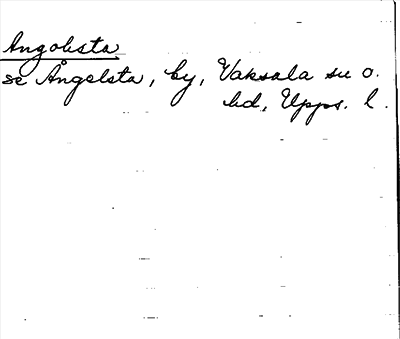 Angolista
se Ångelsta, by, Vaksala sn o.
hd, Upps. l.